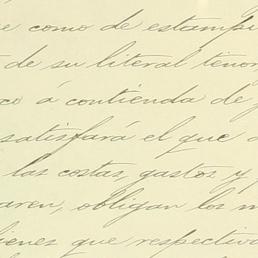 e como de estampi
de su literal tenor
co á contienda de
satisfará el que
las costas, gastos y
aren, obligan los
ienes que respectiva